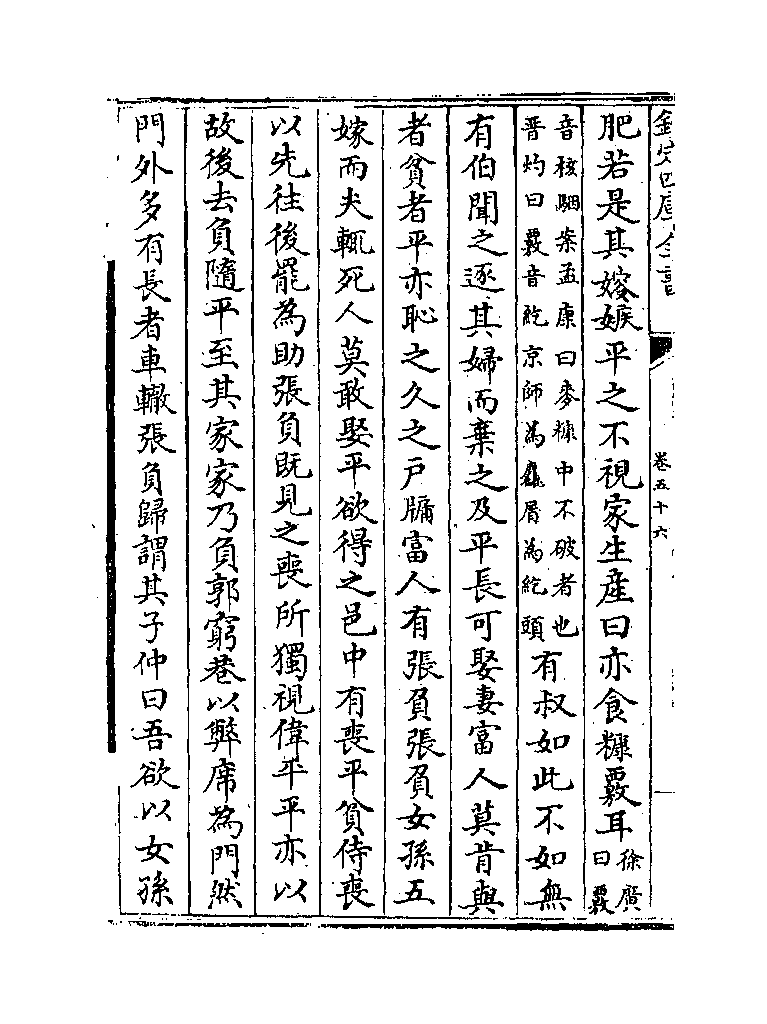 欽定四庫全書
卷五十六
肥若是其嫂嫉平之不視家生産曰亦食糠覈耳徐廣曰覈
音核駰案孟康曰麥糠中不破者也晉灼曰覈音紇京師為麤屑為紇頭有叔如此不如無
有伯聞之逐其婦而棄之及平長可娶妻富人莫肯與
者貧者平亦恥之久之戸牖富人有張負張負女孫五
嫁而夫輒死人莫敢娶平欲得之邑中有喪平貧侍喪
以先往後罷為助張負既見之喪所獨視偉平平亦以
故後去負隨平至其家家乃負郭窮巷以弊席為門然
門外多有長者車轍張負歸謂其子仲曰吾欲以女孫